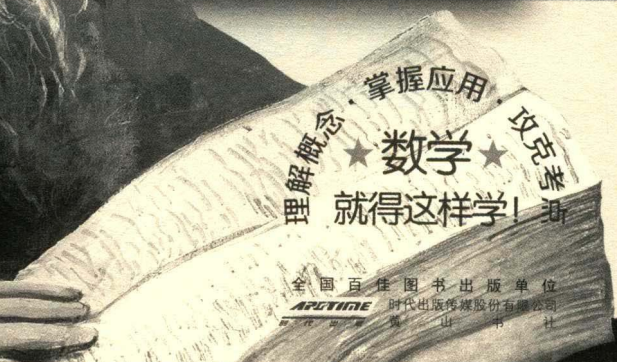 理解概念·掌握应用·攻克考点
★数学★
就得这样学！
全国百佳图书出版单位
ARCTIME 时代出版传媒股份有限公司
时代出版 黄山书社